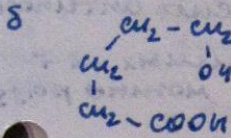 б
CH₂ – CH₂
CH₂ OH
CH₂ – COOH